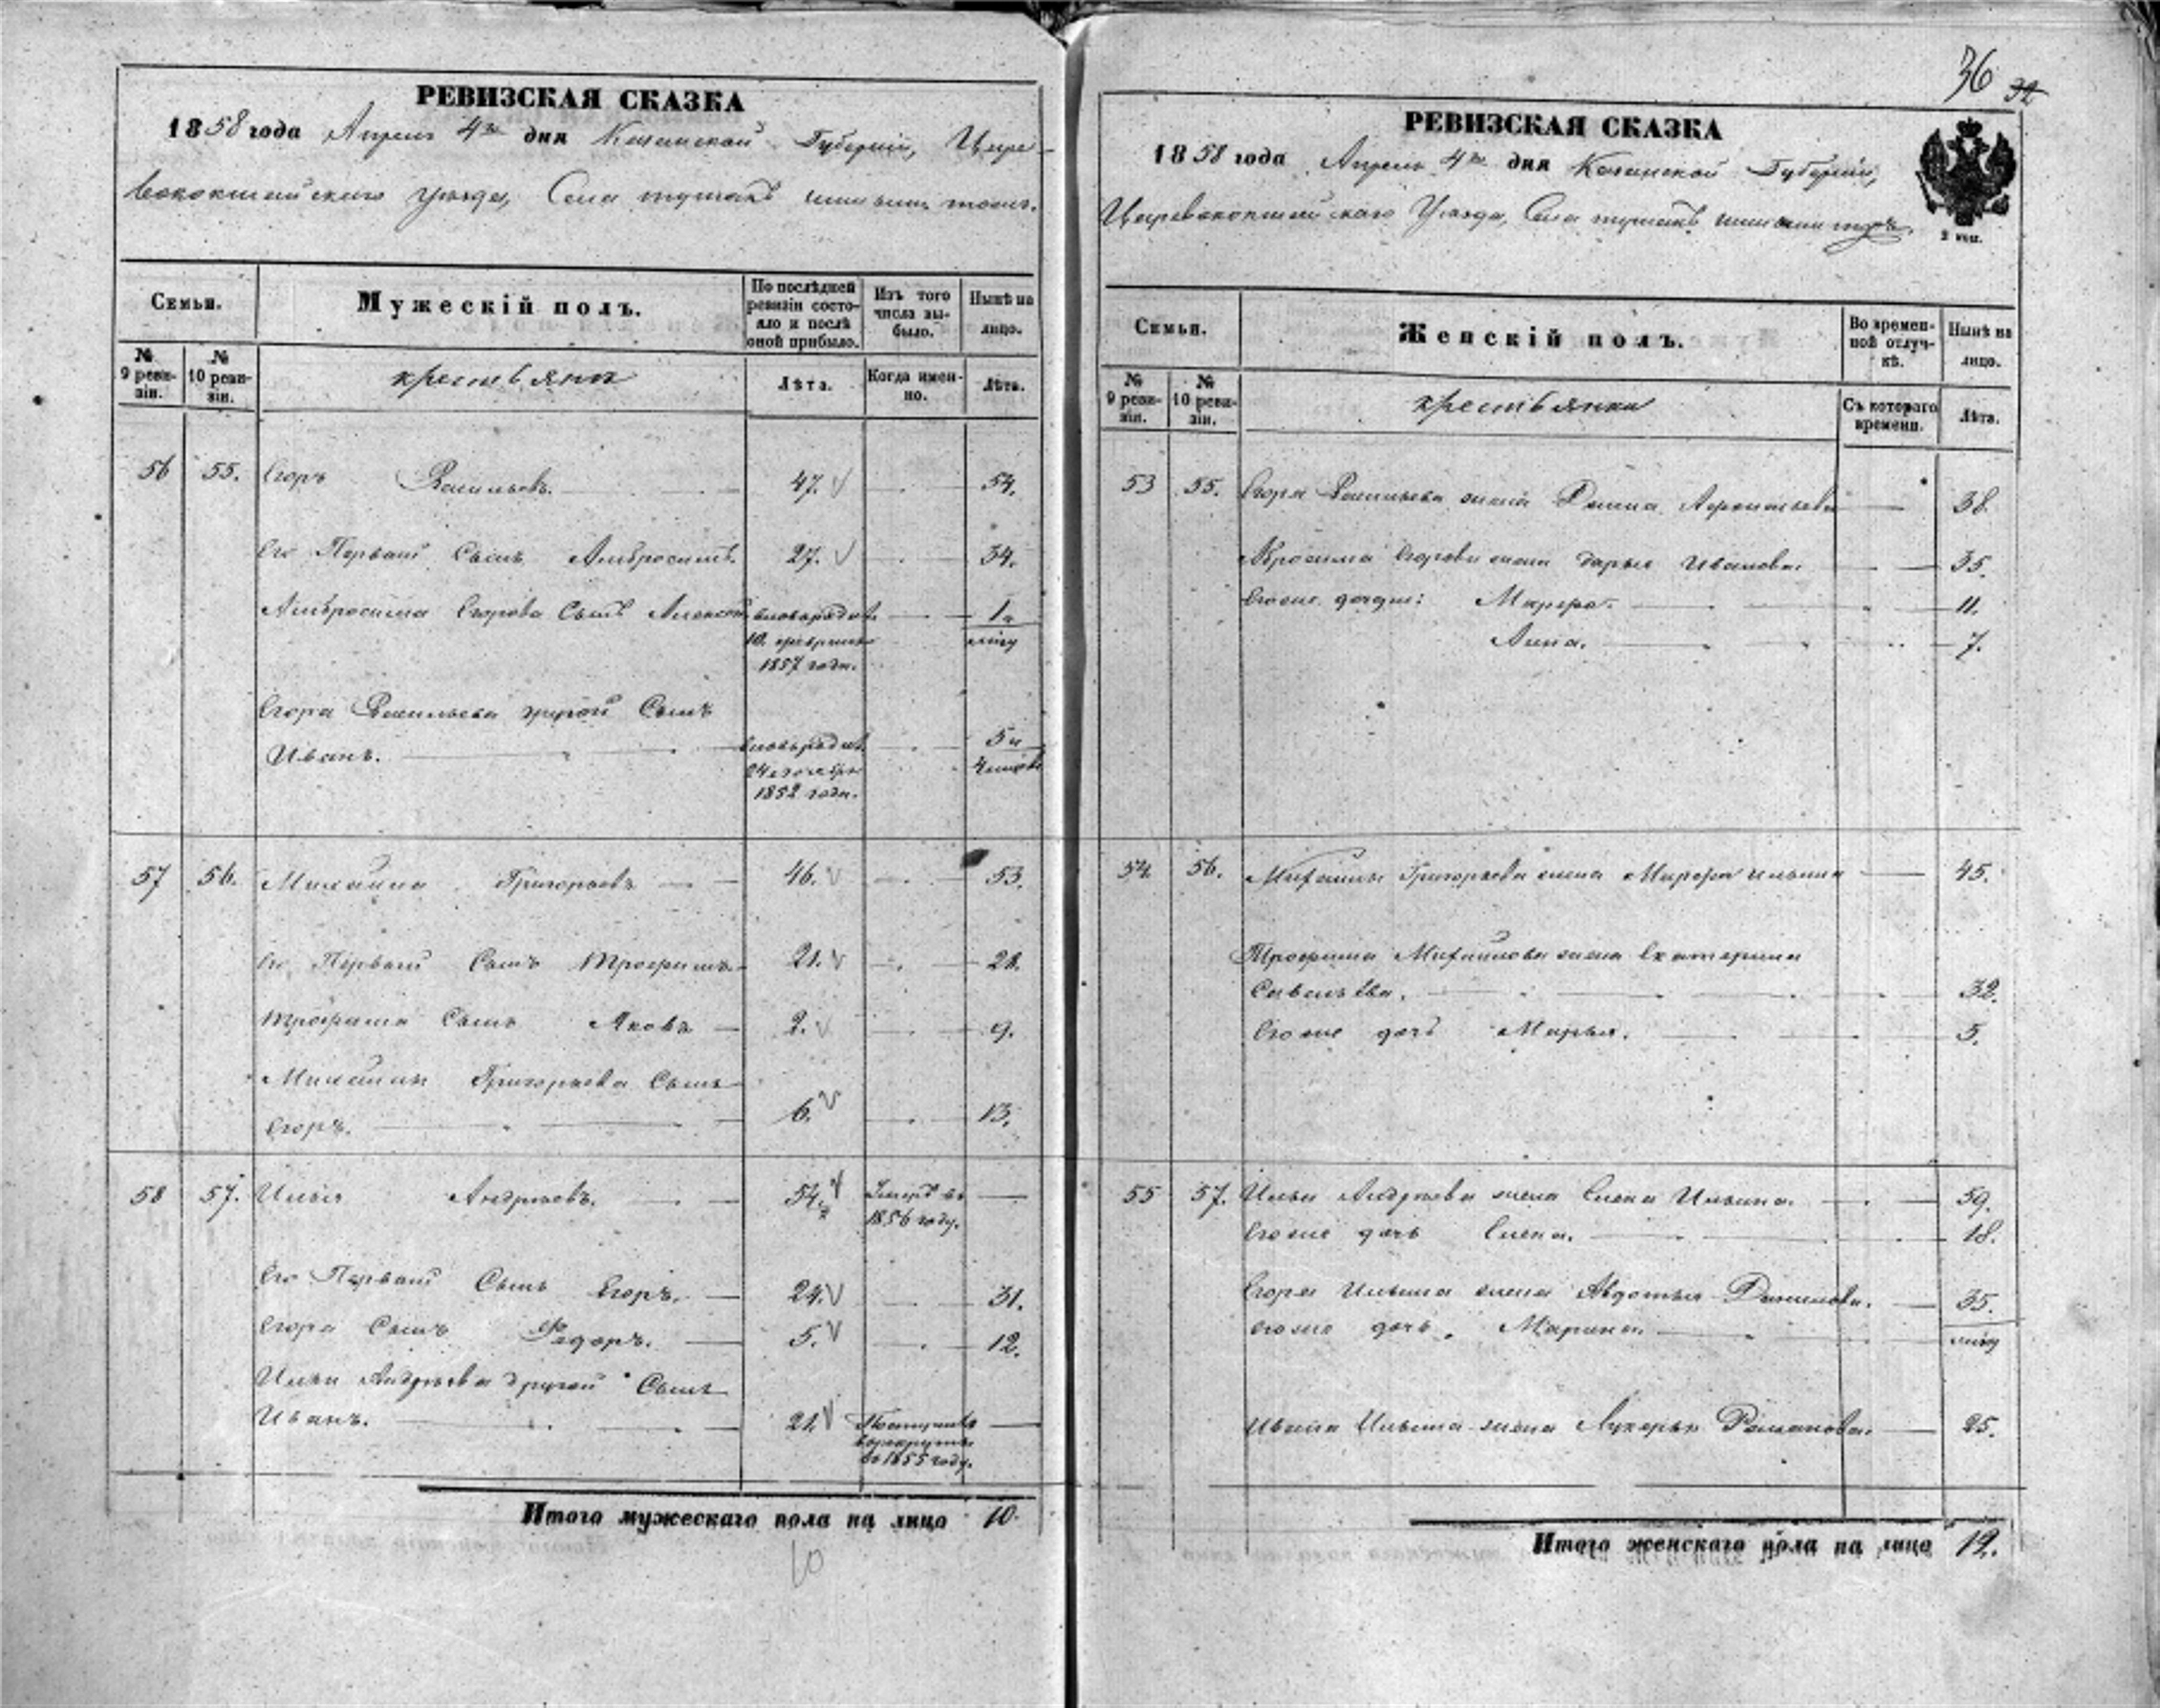 РЕВИЗСКАЯ СКАЗКА
1858 года Апреля 4го дня Казанской Губерніи, Царе-
вококшайскаго уезда, Села
Семьи.
Мужескій полъ.
По послѣдней ревизіи состояло и послѣ оной прибыло.
Изъ того числа выбыло.
Нынѣ на лицо.
№ 9 ревизіи.
№ 10 ревизіи.
крестьяне
Лѣта.
Когда именно.
Лѣта.
56 55. Егоръ Васильевъ. 47. 54.
Его Первый Сынъ Амбросимъ. 27. 34.
Амбросима Егорова Сынъ Алексей вновьрожден 1 и
10. февраля мѣсу
1857 года.
Егора Васильева другой Сынъ
Иванъ. вновьрожден 5 и
24 ноября 4 месяц
1852 года.
57 56. Михайла Григорьевъ 46. 53.
Его Первый Сынъ Трофимъ 21. 28.
Трофима Сынъ Яковъ 2. 9.
Михайлы Григорьева Сынъ
Егоръ. 6. 13.
58 57. Илья Андреевъ. 54. Умеръ въ
1856 году.
Его Первый Сынъ Егоръ. 24. 31.
Егора Сынъ Федоръ. 5. 12.
Ильи Андреева другой Сынъ
Иванъ. 21. Поступилъ
в рекруты
въ 1855 году.
Итого мужескаго пола на лицо 10.
10
36 32
РЕВИЗСКАЯ СКАЗКА
1858 года Апреля 4го дня Казанской Губерніи,
Царевококшайскаго Уезда, Села
2 коп.
Семьи.
Женскій полъ.
Во временной отлучкѣ.
Нынѣ на лицо.
№ 9 ревизіи.
№ 10 ревизіи.
крестьянки
Съ котораго времени.
Лѣта.
53 55. Егора Васильева жена 38.
Абросима Егорова жена Дарья Иванова. 35.
Его же дочери: Марфа. 11.
Анна. 7.
54 56. Михайлы Григорьева жена Марфа Ильина 45.
Трофима Михайлова жена Екатерина
Савельева. 32.
Его же дочь Марья. 5.
55 57. Ильи Андреева жена Елена Ильина. 59.
Его же дочь Елена. 18.
Егора Ильина жена Авдотья Данилова. 35.
Его же дочь Марина. мѣсу
Ивана Ильина жена Лукерья Романова. 25.
Итого женскаго пола на лицо 12.